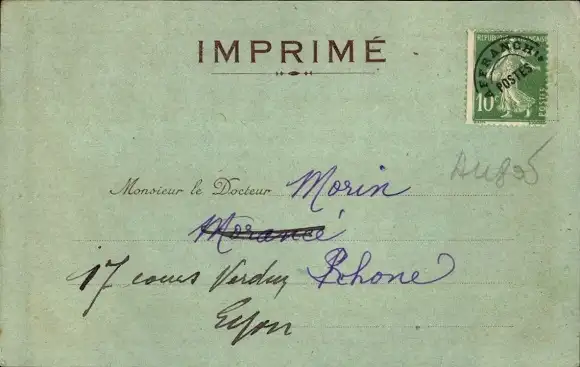 IMPRIMÉ
RÉPUBLIQUE FRANÇAISE
AFFRANCHts
POSTES
10c
POSTES
Monsieur le Docteur Morin
Morancé
17 cours Verdun Rhone
Lyon